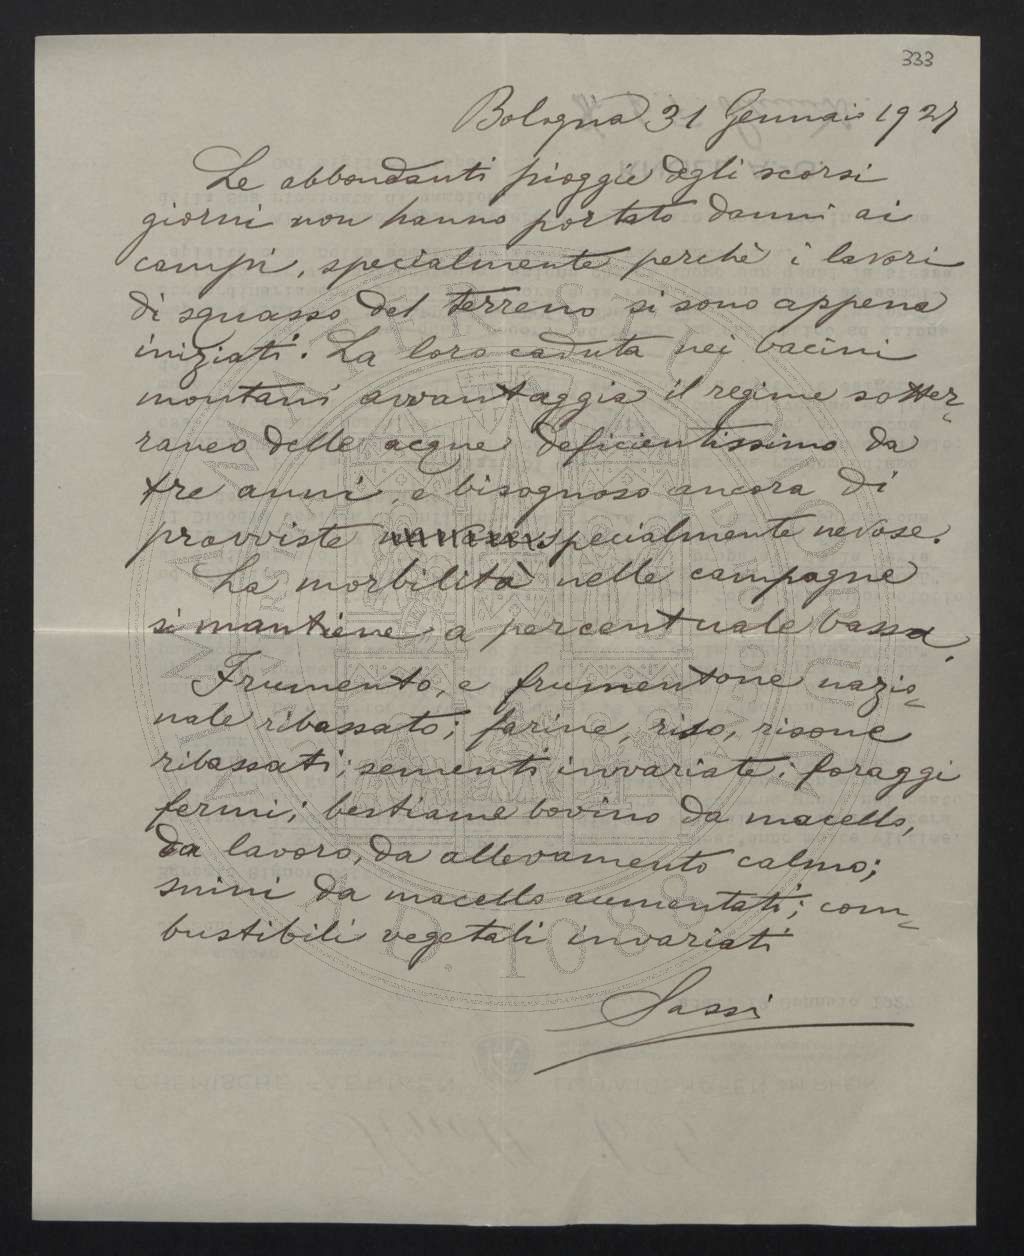 333
Bologna 31 Gennaio 1927
Le abbondanti pioggie degli scorsi
giorni non hanno portato danni ai
campi, specialmente perchè i lavori
di squasso del terreno si sono appena
iniziati. La loro caduta nei bacini
montani avvantaggia il regime sotter-
raneo delle acque deficientissimo da
tre anni, e bisognoso ancora di
provviste specialmente nevose.
La morbilità nelle campagne
si mantiene a percentuale bassa.
Frumento, e frumentone nazio-
nale ribassato; farine, riso, risone
ribassati; sementi invariate; foraggi
fermi; bestiame bovino da macello,
da lavoro, da allevamento calmo;
suini da macello aumentati; com-
bustibili vegetali invariati
Sassi
A.D. 1088